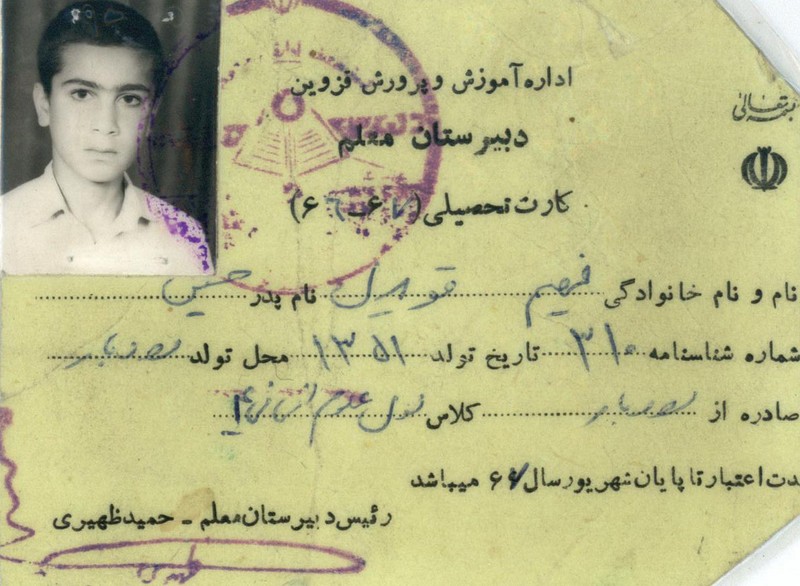 بسمه تعالی
اداره آموزش و پرورش قزوین
دبیرستان معلم
کارت تحصیلی (۶۷-۶۶)
نام و نام خانوادگی فهیم نام پدر حسین
شماره شناسنامه ۳۱۰ تاریخ تولد ۱۳۵۱ محل تولد
صادره از کلاس علوم انسانی
مدت اعتبار تا پایان شهریور سال ۶۷ میباشد
رئیس دبیرستان معلم - حمید ظهیری